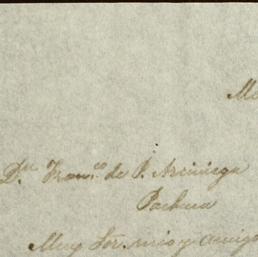 M
Dn. Franco. de P. Arciniega
Pachuca
Muy Sor. mio y amigo